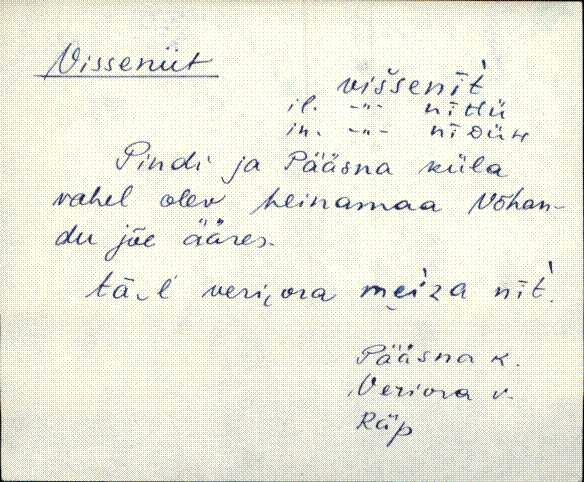 Visseniit
višseni̮t̀
il. -"- nittü
in. -"- niᴅüн
Pindi ja Pääsna küla
vahel olev heinamaa Võhan-
du jõe ääres.
veri̮ora mei̯za nīt̀.
Pääsna k.
Veriora v.
Räp